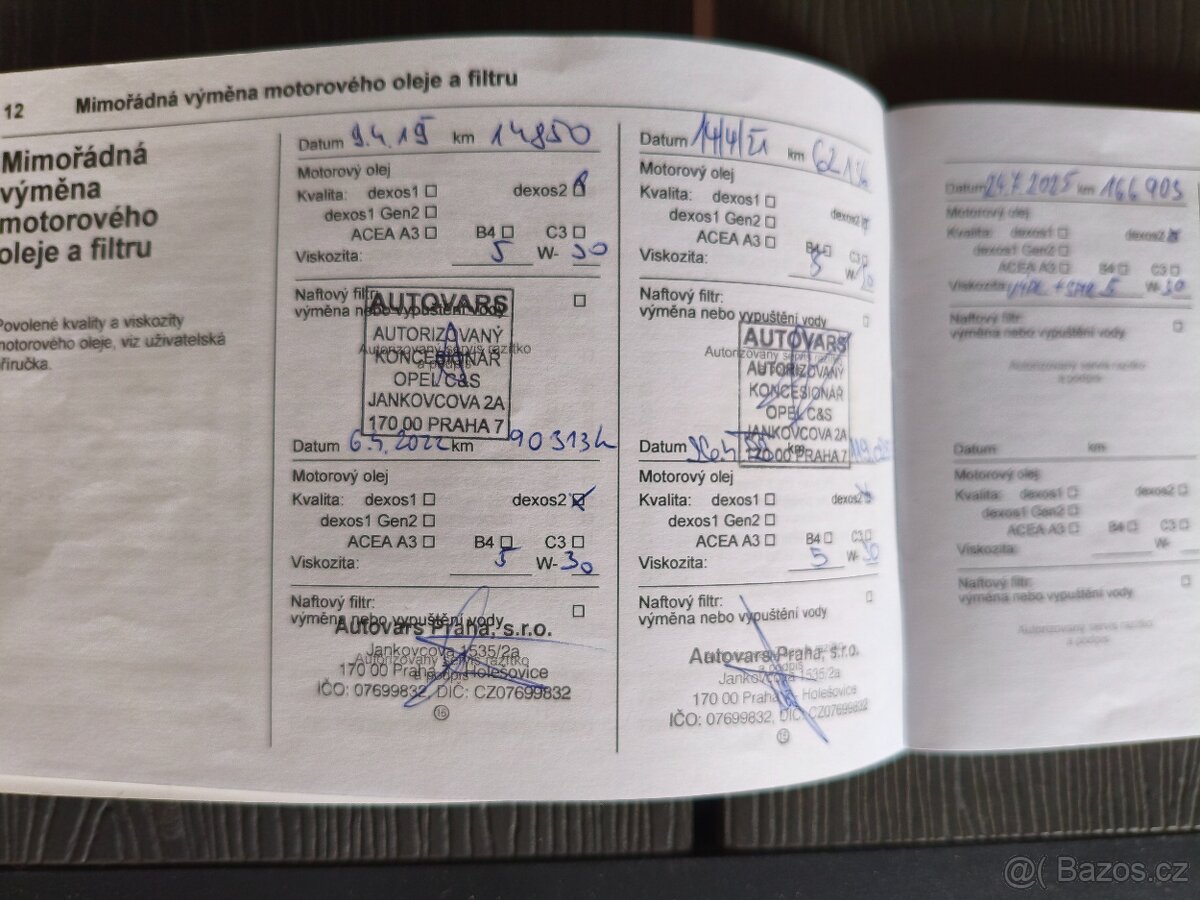 12 Mimořádná výměna motorového oleje a filtru
Mimořádná
výměna
motorového
oleje a filtru
Povolené kvality a viskozity
motorového oleje, viz uživatelská
příručka.
Datum 9.4.19 km 14850
Motorový olej
Kvalita: dexos1 ☐ dexos2 ☐
dexos1 Gen2 ☐
ACEA A3 ☐ B4 ☐ C3 ☐
Viskozita: 5 W- 30
Naftový filtr: ☐
výměna nebo vypuštění vody
AUTOVARS
AUTORIZOVANÝ
KONCESIONÁŘ
OPEL C&S
JANKOVCOVA 2A
170 00 PRAHA 7
Autorizovaný servis razítko
a podpis
Datum 6.5.2022 km 90313
Motorový olej
Kvalita: dexos1 ☐ dexos2 ☒
dexos1 Gen2 ☐
ACEA A3 ☐ B4 ☐ C3 ☐
Viskozita: 5 W- 30
Naftový filtr: ☐
výměna nebo vypuštění vody
Autovars Praha, s.r.o.
Jankovcova 1535/2a
170 00 Praha 7 - Holešovice
IČO: 07699832, DIČ: CZ07699832
15
Autorizovaný servis razítko
a podpis
Datum 14/4/21 km
Motorový olej
Kvalita: dexos1 ☐ dexos2
dexos1 Gen2 ☐
ACEA A3 ☐ B4 ☐ C3 ☐
Viskozita: 5 W- 30
Naftový filtr: ☐
výměna nebo vypuštění vody
AUTOVARS
AUTORIZOVANÝ
KONCESIONÁŘ
OPEL C&S
JANKOVCOVA 2A
170 00 PRAHA 7
Autorizovaný servis razítko
Datum km
Motorový olej
Kvalita: dexos1 ☐ dexos2 ☒
dexos1 Gen2 ☐
ACEA A3 ☐ B4 ☐ C3 ☐
Viskozita: 5 W- 30
Naftový filtr: ☐
výměna nebo vypuštění vody
Autovars Praha, s.r.o.
Jankovcova 1535/2a
170 00 Praha Holešovice
IČO: 07699832, DIČ: CZ07699832
15
a podpis
Datum 24.7.2025 km 166903
Motorový olej
Kvalita: dexos1 ☐ dexos2 ☒
dexos1 Gen2 ☐
ACEA A3 ☐ B4 ☐ C3 ☐
Viskozita: 5 W- 30
Naftový filtr: ☐
výměna nebo vypuštění vody
Autorizovaný servis razítko
a podpis
Datum km
Motorový olej
Kvalita: dexos1 ☐ dexos2 ☐
dexos1 Gen2 ☐
ACEA A3 ☐ B4 ☐ C3 ☐
Viskozita: W-
Naftový filtr: ☐
výměna nebo vypuštění vody
Autorizovaný servis razítko
a podpis
@( Bazos.cz